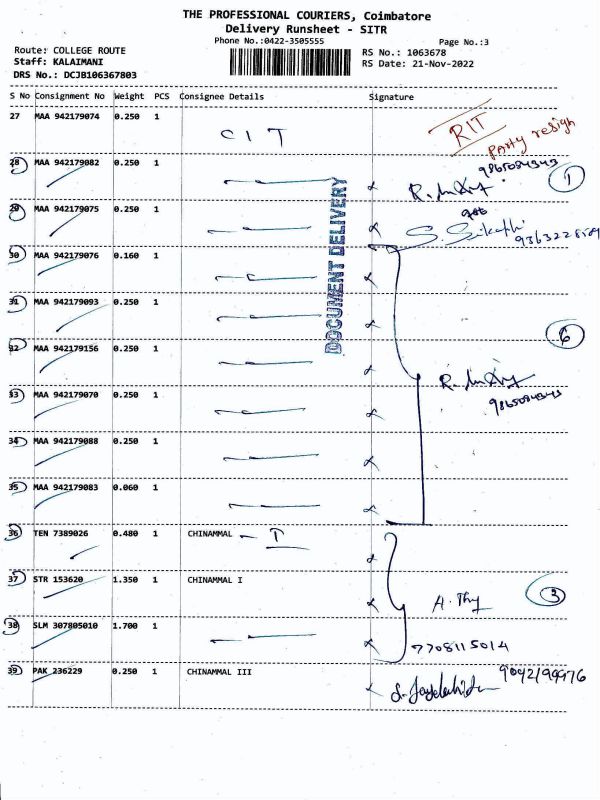 THE PROFESSIONAL COURIERS, Coimbatore
Delivery Runsheet - SITR
Phone No.:0422-3505555
Page No.:3
Route: COLLEGE ROUTE
RS No.: 1063678
Staff: KALAIMANI
RS Date: 21-Nov-2022
DRS No.: DCJB106367803
S No Consignment No Weight PCS Consignee Details Signature
27 MAA 942179074 0.250 1 CIT RIT
Party resign
28 MAA 942179082 0.250 1 9865084343
1
29 MAA 942179075 0.250 1
30 MAA 942179076 0.160 1
31 MAA 942179093 0.250 1
6
32 MAA 942179156 0.250 1
33 MAA 942179070 0.250 1 9865084343
34 MAA 942179088 0.250 1
35 MAA 942179083 0.060 1
36 TEN 7389026 0.480 1 CHINAMMAL - I
37 STR 153620 1.350 1 CHINAMMAL I
3
38 SLM 307805010 1.700 1 7708115014
39 PAK 236229 0.250 1 CHINAMMAL III
DOCUMENT DELIVERY